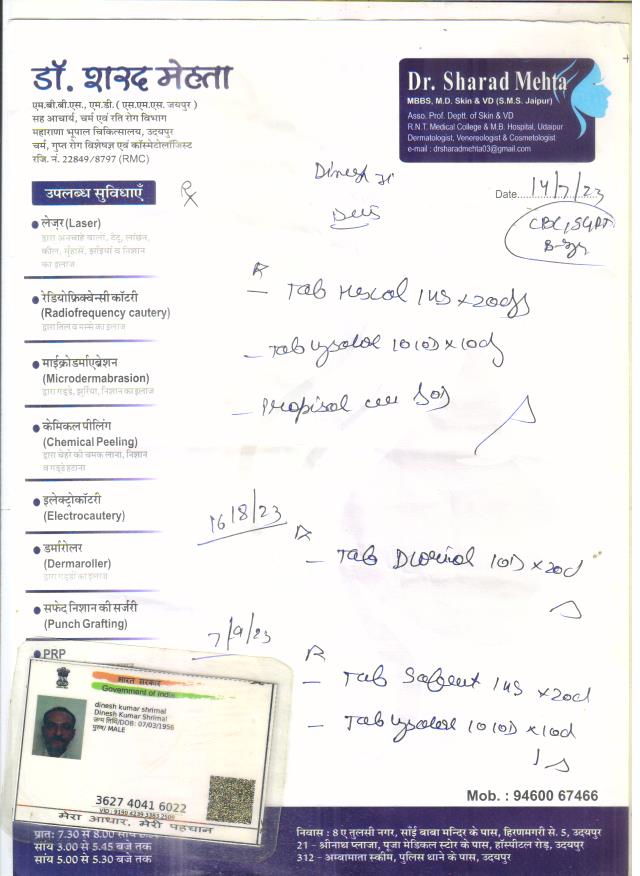 डॉ. शरद मेहता
एम.बी.बी.एस., एम.डी. ( एस.एम.एस. जयपुर )
सह आचार्य, चर्म एवं रति रोग विभाग
महाराणा भूपाल चिकित्सालय, उदयपुर
चर्म, गुप्त रोग विशेषज्ञ एवं कॉस्मेटोलॉजिस्ट
रजि. नं. 22849/8797 (RMC)
Dr. Sharad Mehta
MBBS, M.D. Skin & VD (S.M.S. Jaipur)
Asso. Prof. Deptt. of Skin & VD
R.N.T. Medical College & M.B. Hospital, Udaipur
Dermatologist, Venereologist & Cosmetologist
e-mail : drsharadmehta03@gmail.com
Dinesh Ji
Date 14/7/23
CBC, SGPT
उपलब्ध सुविधाएँ
लेज़र (Laser)
द्वारा अनचाहे बाल, टैटू, लांछन,
कील, मुँहासे, झाँइयां व निशान
का इलाज
रेडियोफ्रिक्वेन्सी कॉटरी
(Radiofrequency cautery)
द्वारा तिल व मस्से का इलाज
माईक्रोडर्माएब्रेशन
(Microdermabrasion)
द्वारा गड्ढे, झुर्रिया, निशान का इलाज
केमिकल पीलिंग
(Chemical Peeling)
द्वारा चेहरे की चमक लाना, निशान
व गड्ढे हटाना
इलेक्ट्रोकॉटरी
(Electrocautery)
डर्मारोलर
(Dermaroller)
द्वारा गड्ढों का इलाज
सफेद निशान की सर्जरी
(Punch Grafting)
PRP
Tab 1 HS x 20d
Tab 10 10D x 10d
16/8/23
Tab 10D x 20d
7/9/23
Tab 1 HS x 20d
Tab 10 10D x 10d
भारत सरकार
Government of India
dinesh kumar shrimal
Dinesh Kumar Shrimal
जन्म तिथि/DOB: 07/03/1956
पुरुष/ MALE
3627 4041 6022
मेरा आधार, मेरी पहचान
Mob. : 94600 67466
प्रात: 7.30 से 8.00
सांय 3.00 से 5.45 बजे तक
सांय 5.00 से 5.30 बजे तक
निवास : 8 ए तुलसी नगर, सांई बाबा मन्दिर के पास, हिरणमगरी से. 5, उदयपुर
21 – श्रीनाथ प्लाजा, पूजा मेडिकल स्टोर के पास, हॉस्पीटल रोड़, उदयपुर
312 – अम्बामाता स्कीम, पुलिस थाने के पास, उदयपुर